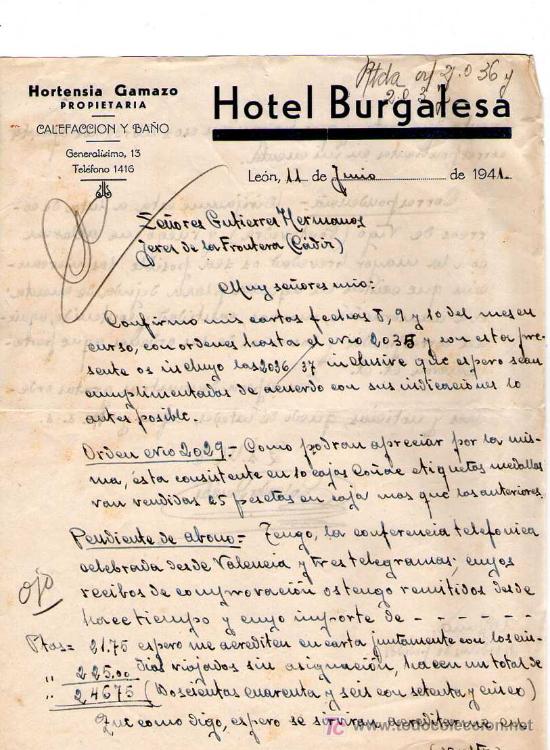 Ptda o/ 2.036 y
2.037
Hortensia Gamazo
PROPIETARIA
CALEFACCION Y BAÑO
Generalísimo, 13
Teléfono 1416
Hotel Burgalesa
León, 11 de Junio de 1941.
Señores Gutierrez Hermanos
Jerez de la Frontera (Cádiz)
Muy señores mio:
Confirmo mis cartas fechas 8, 9 y 10 del mes en
curso, con ordenes hasta el nro 2035 y con esta pre-
sente os incluyo las 2036 37 inclusive que espero sean
cumplimentadas de acuerdo con sus indicaciones lo
antes posible.
Orden nro 2029.- Como podran apreciar por la mis-
ma, ésta consistente en 10 cajas Coñac etiquetas medallas
van vendidas 25 pesetas en caja mas que las anteriores.
Pendiente de abono.- Tengo, la conferencia telefonica
celebrada desde Valencia y tres telegramas; cuyos
recibos de comprovación os tengo remitidos desde
ojo
hace tiempo y cuyo importe de - - - - - -
Ptas= 21.75 espero me acrediten en carta juntamente con los
" 225.00 dias viajados sin asignación, hacen un total de
" 24675 (Doscientas cuarenta y seis con setenta y cinco)
Que como digo, espero se sirvan acreditarme en
TC www.todocoleccion.net